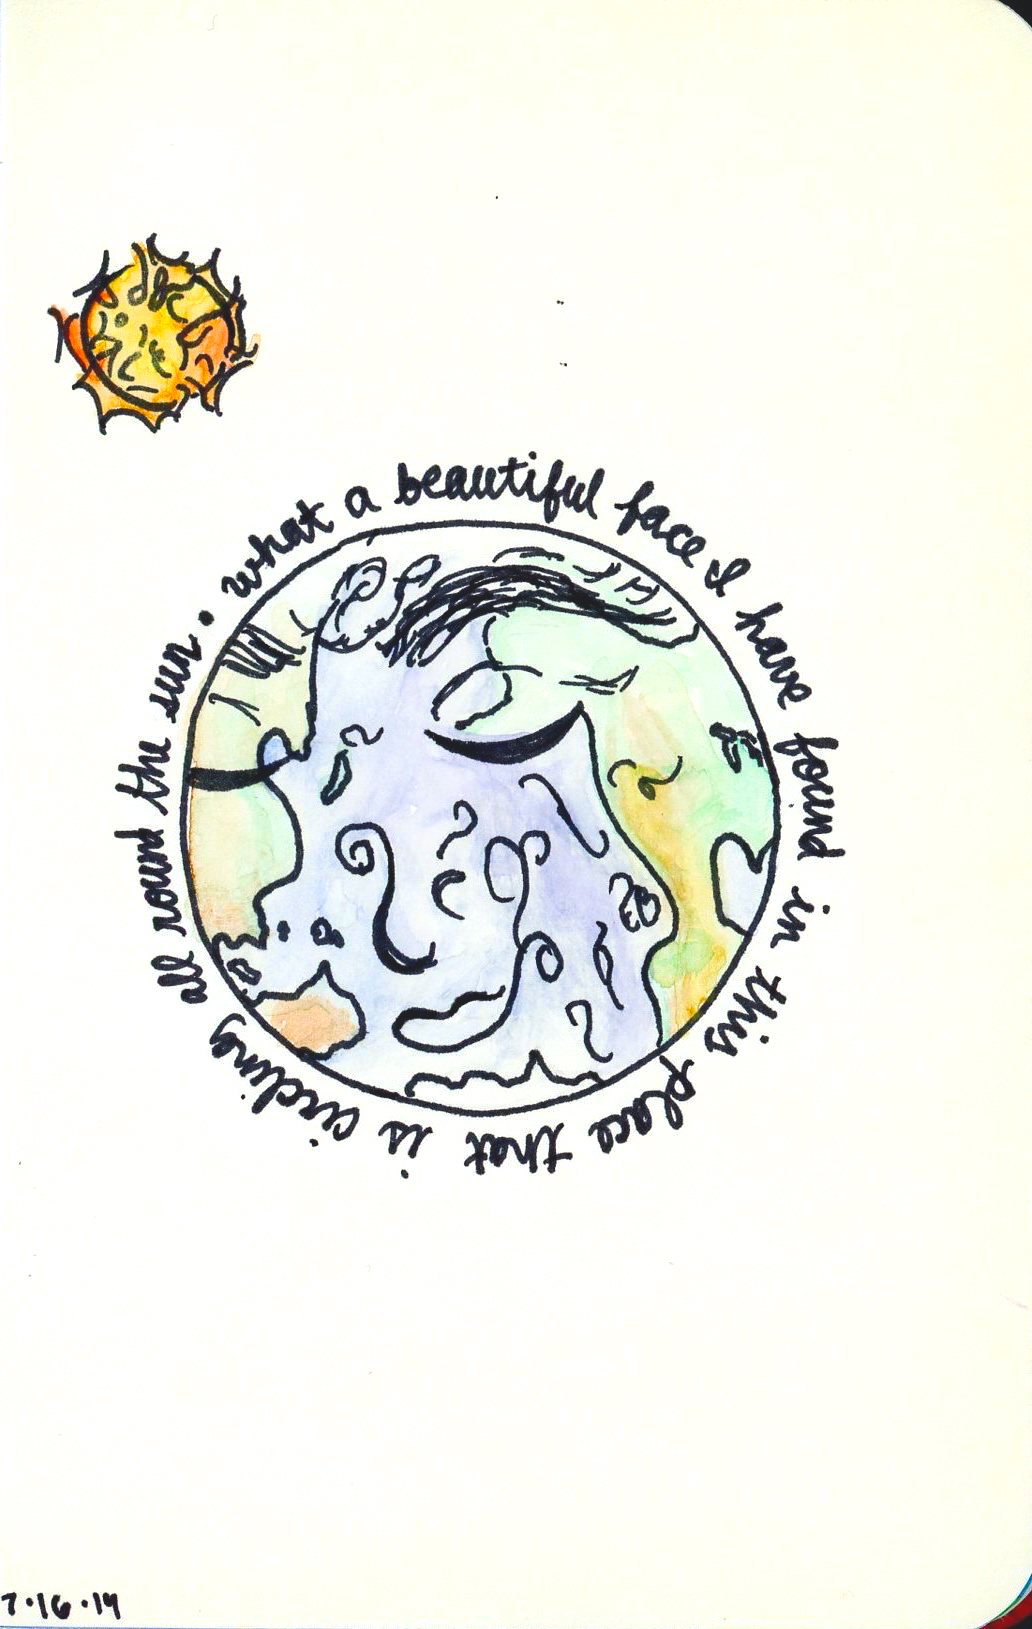 what a beautiful face I have found in this place that is circling all round the sun.
7.16.14